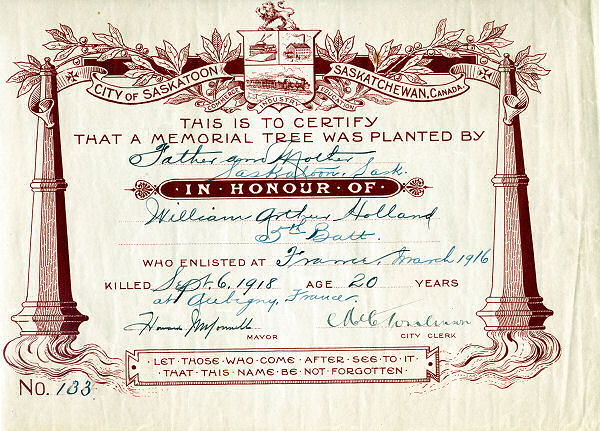 CITY OF SASKATOON SASKATCHEWAN, CANADA.
COMMERCE INDUSTRY EDUCATION
THIS IS TO CERTIFY
THAT A MEMORIAL TREE WAS PLANTED BY
Father and Mother
Saskatoon, Sask.
· IN · HONOUR · OF ·
William Arthur Holland
5th Batt.
WHO ENLISTED AT France, March 1916
KILLED Sept. 6, 1918 AGE 20 YEARS
at Aubigny, France.
Howard McConnell
MAYOR CITY CLERK
· LET · THOSE · WHO · COME · AFTER · SEE · TO · IT ·
· THAT · THIS · NAME · BE · NOT · FORGOTTEN ·
No. 133